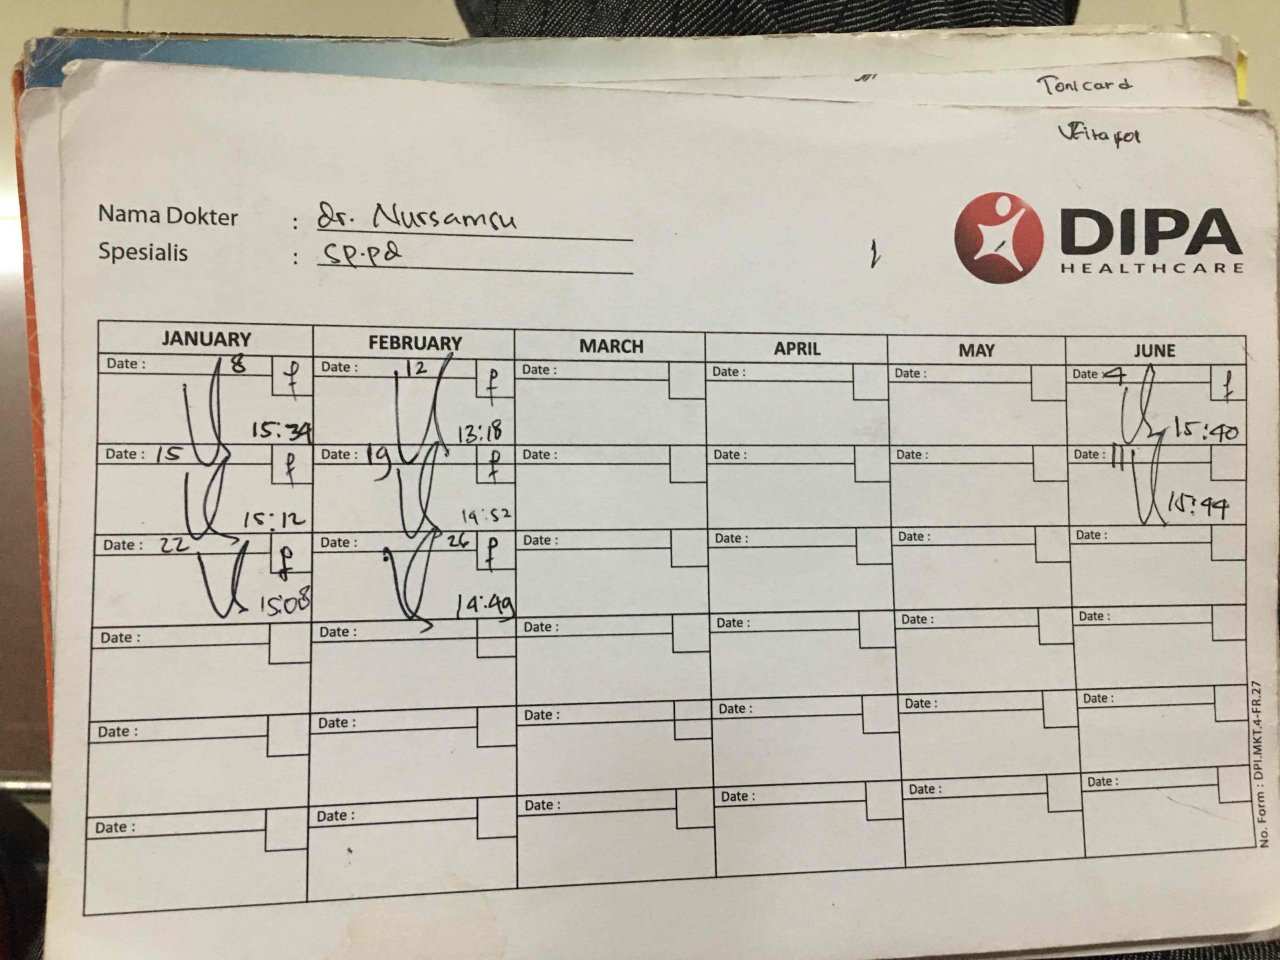 Tonicard
Nama Dokter : dr. Nursamsu
Spesialis : Sp.pd
DIPA
HEALTHCARE
JANUARY FEBRUARY MARCH APRIL MAY JUNE
Date : 8 f Date : 12 f Date : Date : Date : Date : 4 f
15:34 13:18 15:40
Date : 15 f Date : 19 f Date : Date : Date : Date : 11
15:12 14:52 15:44
Date : 22 f Date : 26 f Date : Date : Date : Date :
15:08 14:49
Date : Date : Date : Date : Date : Date :
Date : Date : Date : Date : Date : Date :
Date : Date : Date : Date : Date : Date :
No. Form : DPI.MKT.4-FR.27